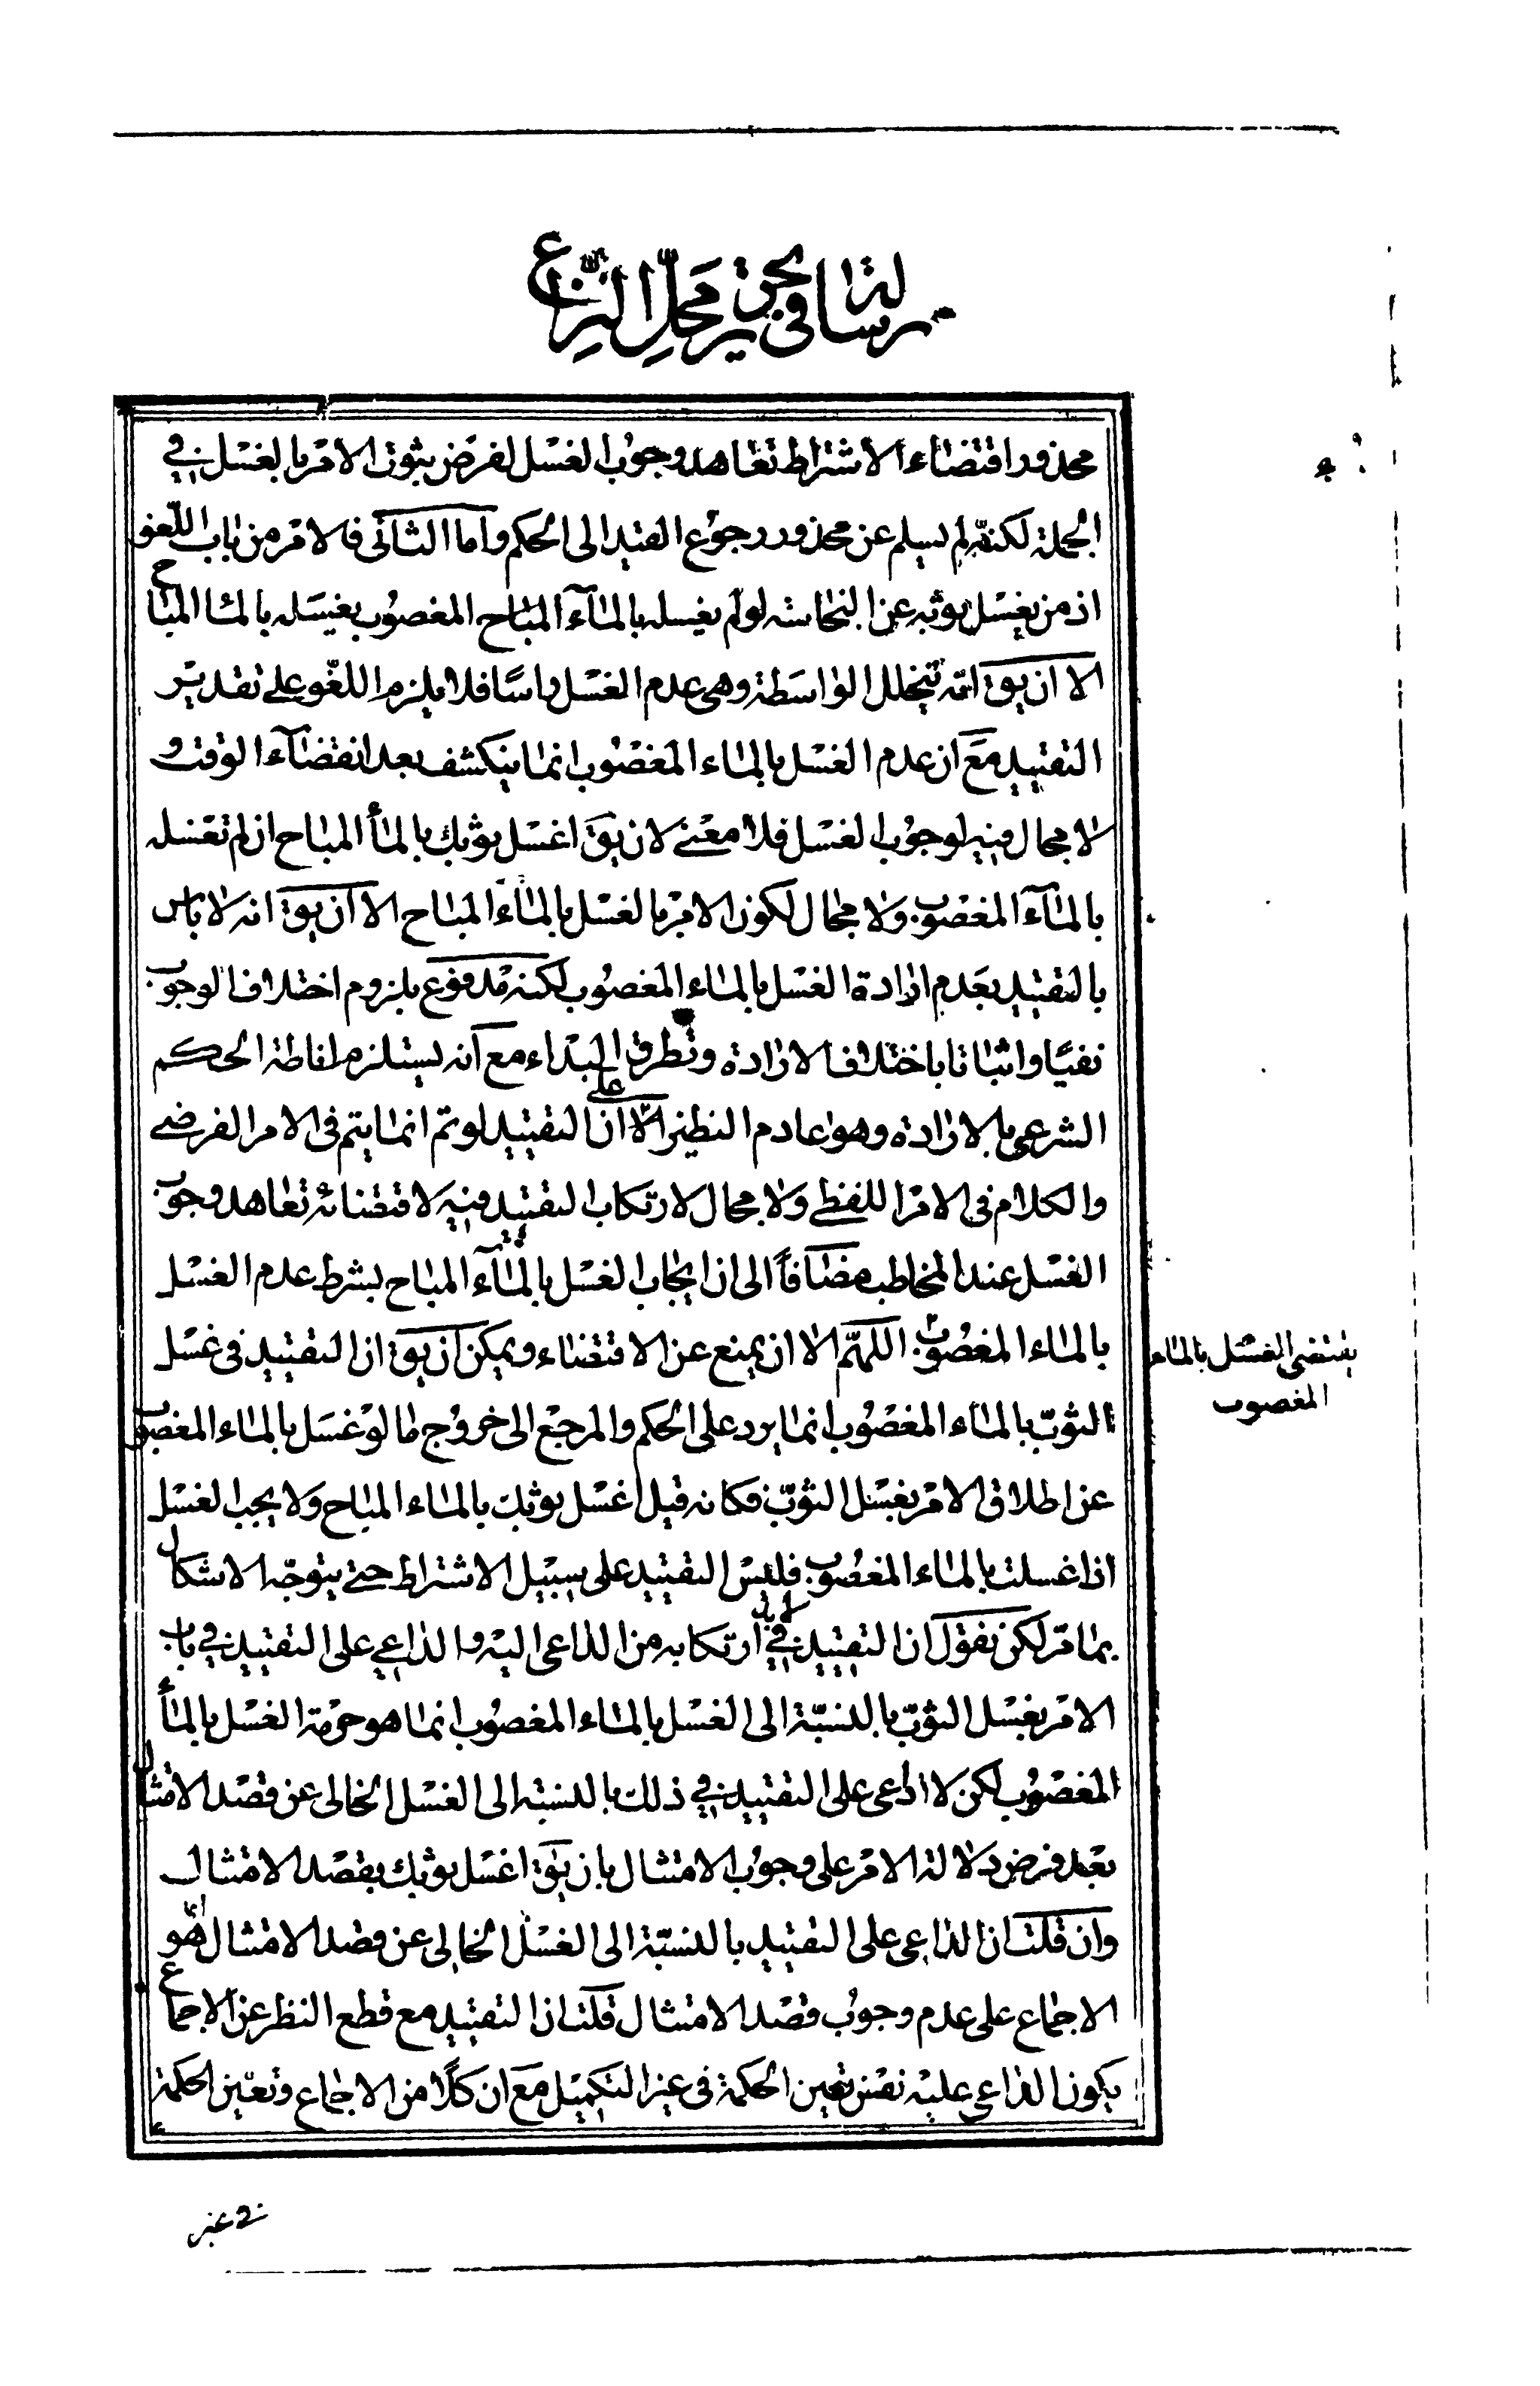 رسالة في تحرير محل النزاع
محذور اقتضاء الاشتراط تعاهد وجوب الغسل لفرض ثبوت الامر بالغسل في
الجملة لكنه لم يسلم عن محذور رجوع القيد الى الحكم واما الثانى فالامر من باب اللغو
اذ من يغسل ثوبه عن النجاسة لو لم يغسله بالماء المباح المغصوب يغسله بالماء المباح
الا ان يق انه تيخلل الواسطة وهى عدم الغسل راسًا فلا يلزم اللغو على تقدير
التقييد مع ان عدم الغسل بالماء المغصوب انما ينكشف بعد انقضاء الوقت و
لا مجال فيه لوجوب الغسل فلا معنى لان يق اغسل ثوبك بالماء المباح ان لم تغسله
بالماء المغصوب ولا مجال لكون الامر بالغسل بالماء المباح الا ان يق انه لا باس
بالتقييد بعدم ارادة الغسل بالماء المغصوب لكنه مدفوع بلزوم اختلاف الوجوب
نفيًا واثباتا باختلاف الارادة وتطرق البداء مع انه يستلزم اناطة الحكم
الشرعى بالارادة وهو عادم النظير على الا ان التقييد لو تم انما يتم فى الامر الفرضى
والكلام فى الامر اللفظى ولا مجال لارتكاب التقييد فيه لاقتضائه تعاهد وجوب
الغسل عند المخاطب مضافاً الى ان ايجاب الغسل بالماء المباح بشرط عدم الغسل
بالماء المغصوب اللهم الا ان يمنع عن الاقتضاء ويمكن ان يق ان التقييد فى غسل
يقتضى الغسل بالماء
المغصوب
الثوب بالماء المغصوب انما يرد على الحكم والمرجع الى خروج ما لو غسل بالماء المغصوب
عن اطلاق الامر بغسل الثوب فكانه قيل اغسل ثوبك بالماء المباح ولا يجب الغسل
اذا غسلت بالماء المغصوب فليس التقييد على سبيل الاشتراط حتى يتوجه الاشكال
بما مر لكن نقول ان التقييد لا بد فى ارتكابه من الداعى اليه والداعى على التقييد فى باب
الامر بغسل الثوب بالنسبة الى الغسل بالماء المغصوب انما هو حرمة الغسل بالماء
المغصوب لكن لا داعى على التقييد فى ذلك بالنسبة الى الغسل الخالى عن قصد الامتثال
بعد فرض دلالة الامر على وجوب الامتثال بان يق اغسل ثوبك بقصد الامتثال
وان قلت ان الداعى على التقييد بالنسبة الى الغسل الخالى عن قصد الامتثال انما هو
الاجماع على عدم وجوب قصد الامتثال قلت ان التقييد مع قطع النظر عن الاجماع
يكون الداعى عليه نفس تعين الحكمة فى عين التكميل مع ان كلًا من الاجماع وتعين الحكمة